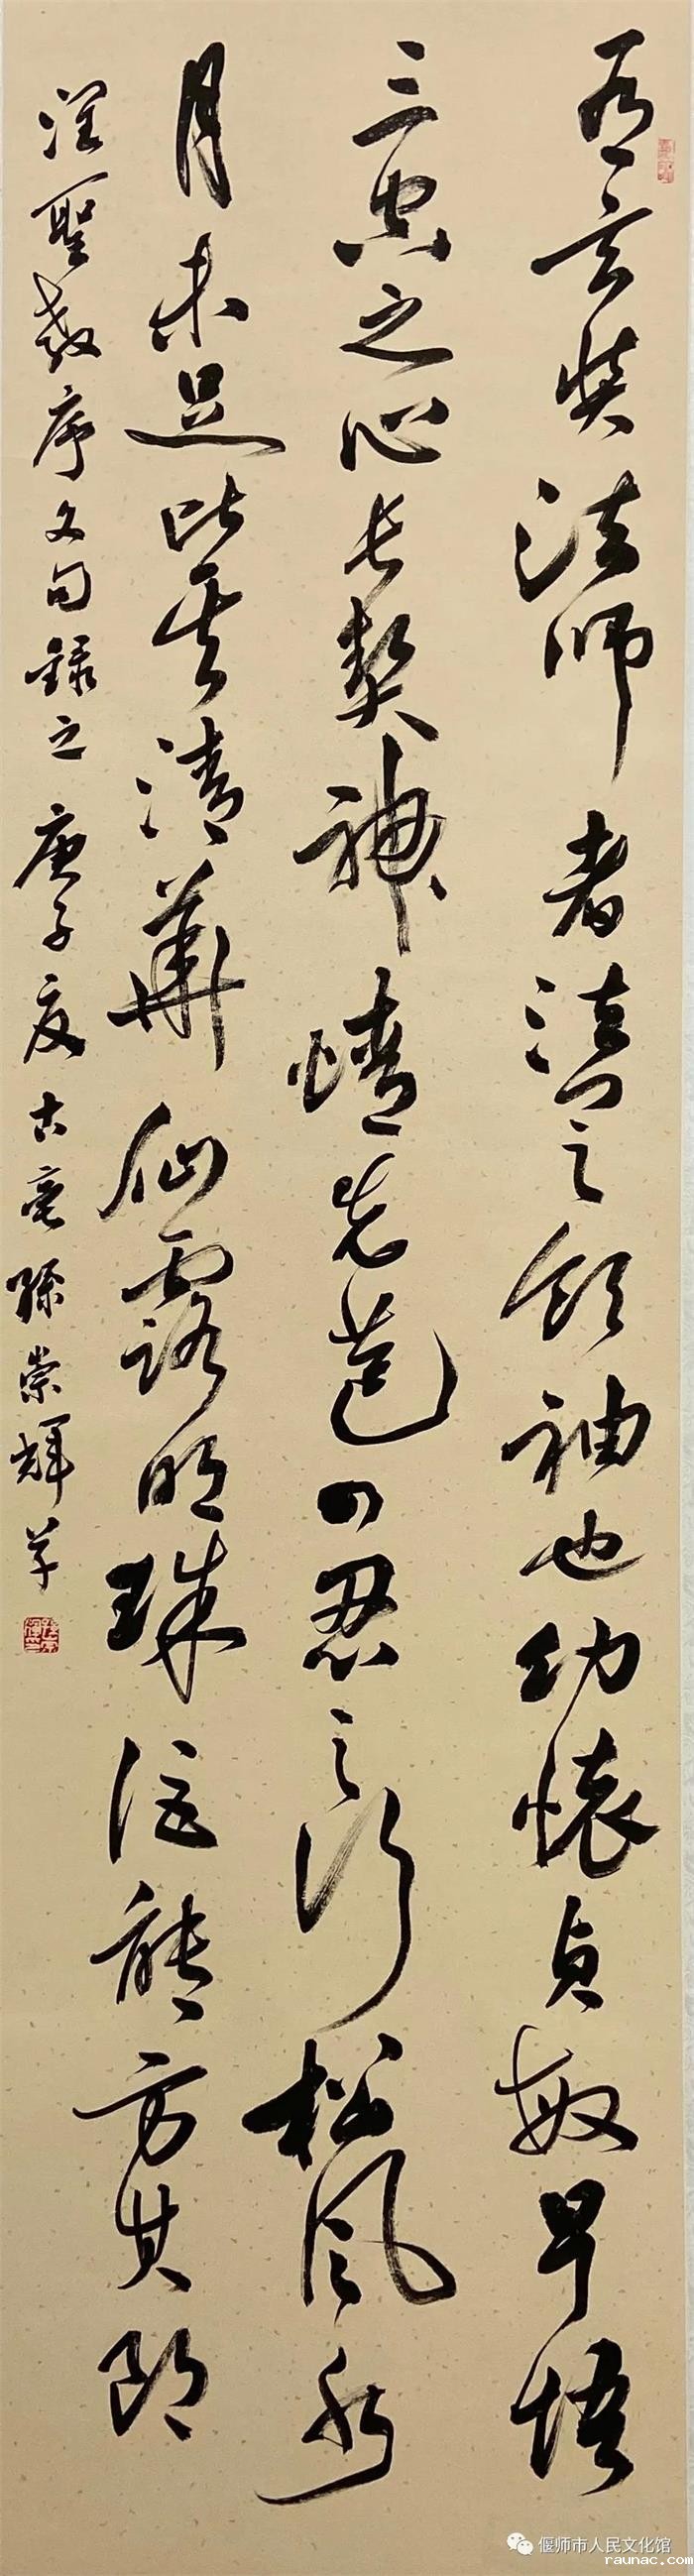 有玄奘法師者法門之領袖也幼懷貞敏早悟
三空之心長契神情先苞四忍之行松風水
月未足比其清華仙露明珠詎能方其朗
潤聖教序文句録之庚子夏古亳孫崇輝草
偃师市人民文化馆
raunac.com